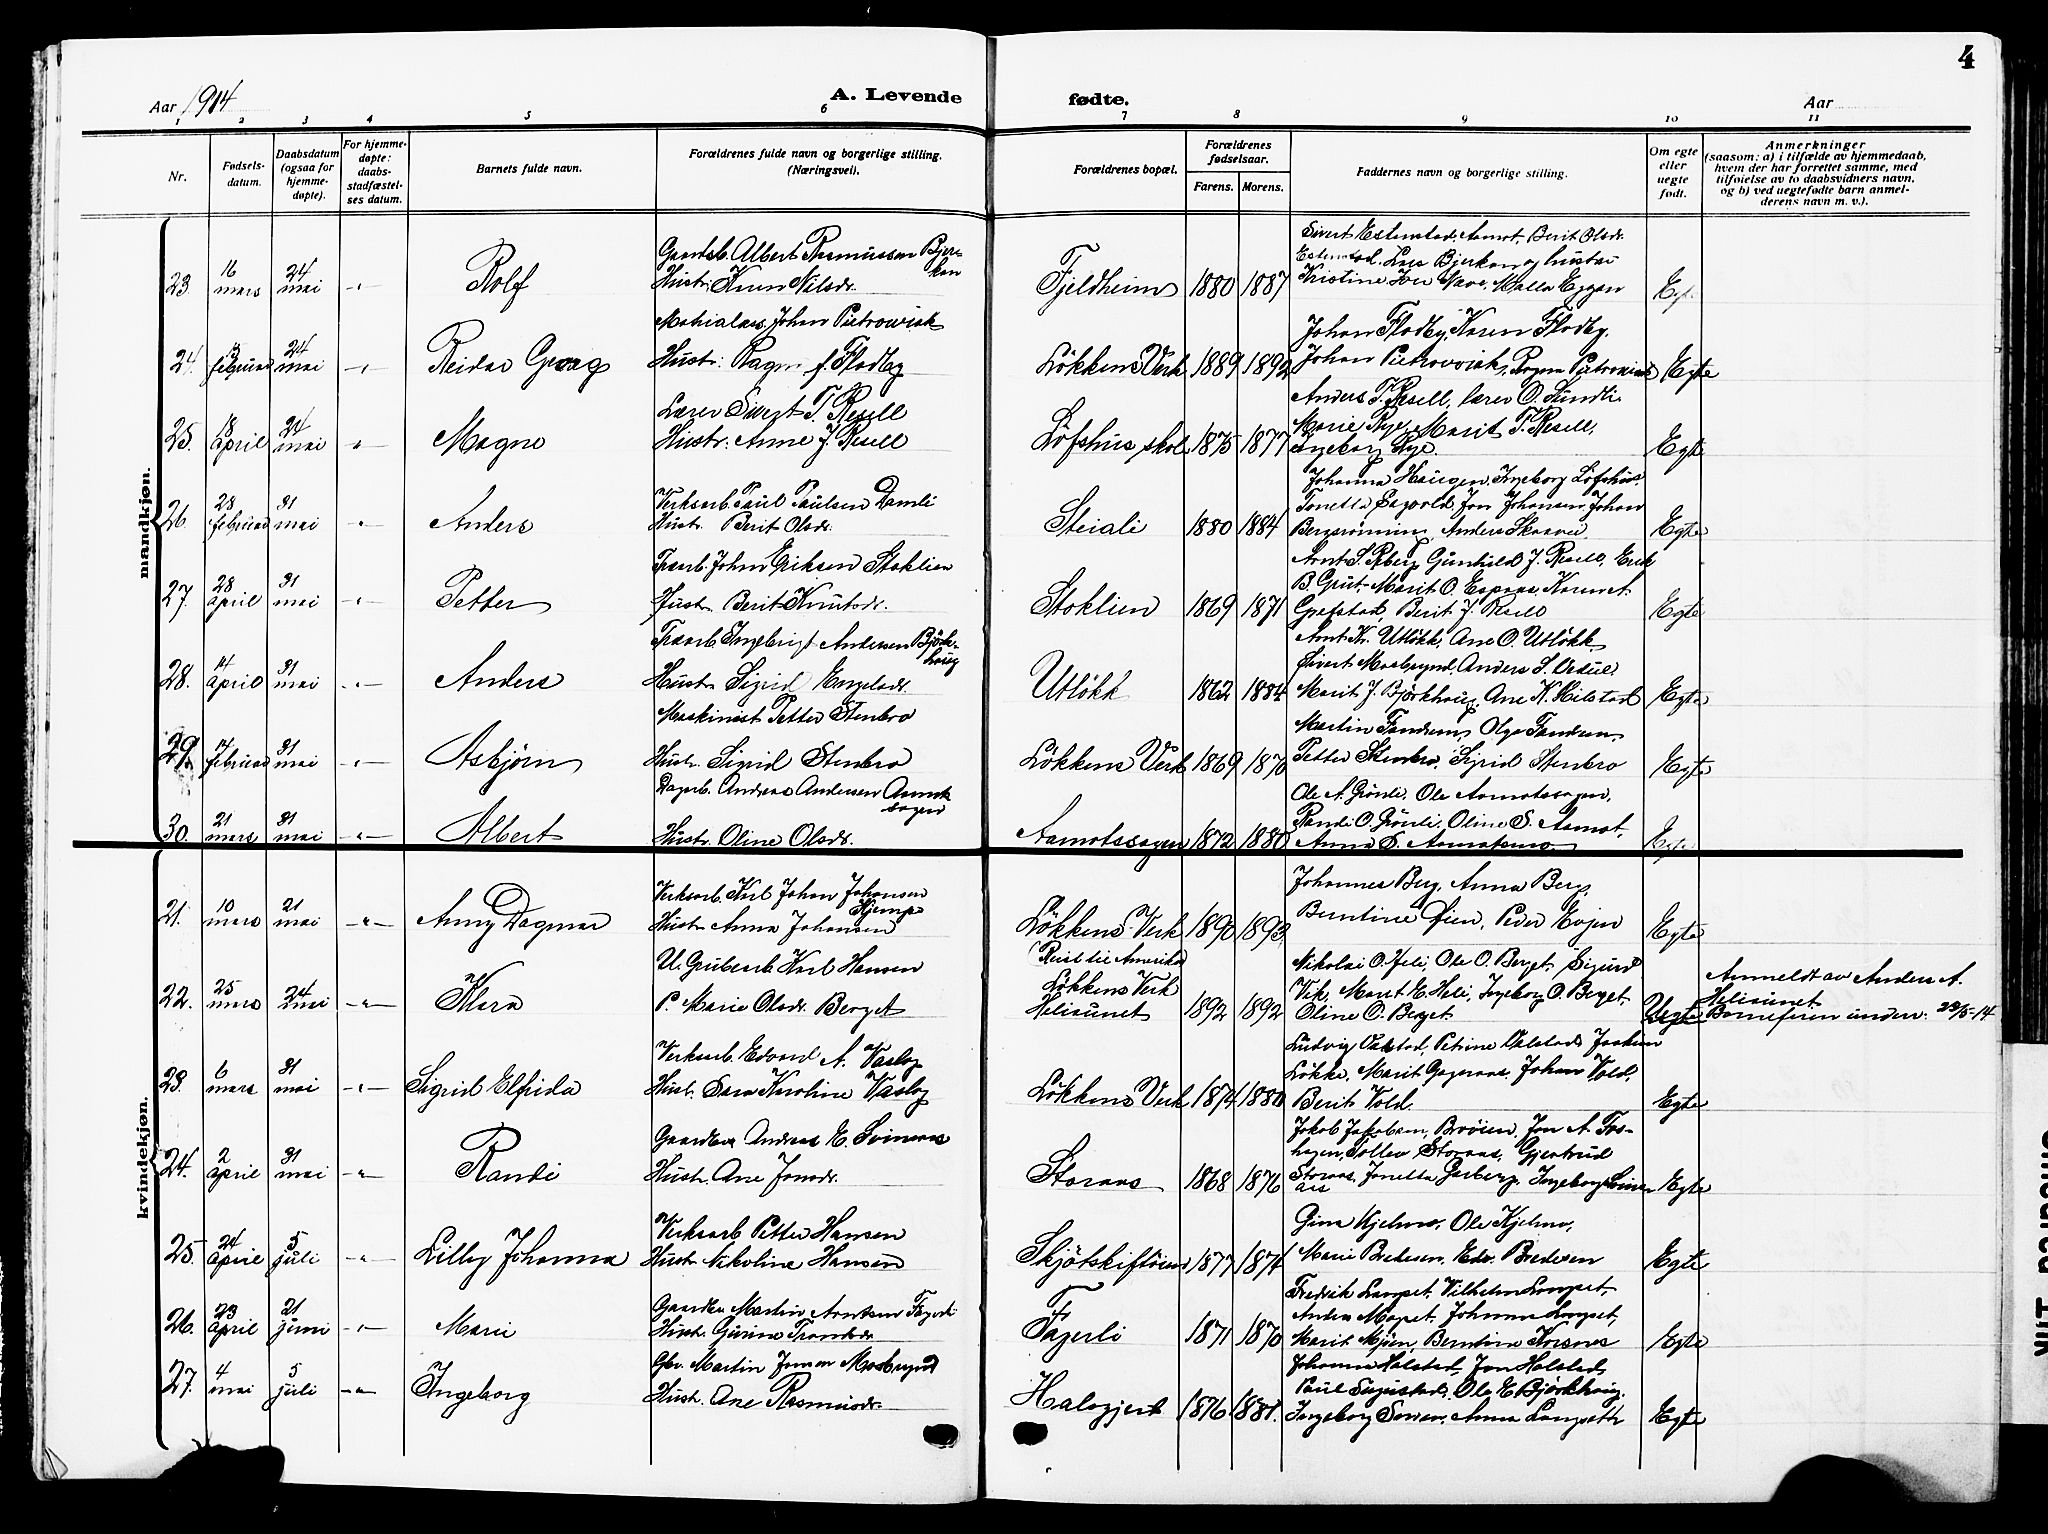 4
Aar 1914
A. Levende
fødte.
Aar
1 2 3 4 5 6 7 8 9 10 11
Nr.
Fødsels-
datum.
Daabsdatum
(ogsaa for
hjemme-
døpte).
For hjemme-
døpte:
daabs-
stadfæstel-
ses datum.
Barnets fulde navn.
Forældrenes fulde navn og borgerlige stilling.
(Næringsvei).
Forældrenes bopæl.
Forældrenes
fødselsaar.
Farens. Morens.
Faddernes navn og borgerlige stilling.
Om egte
eller
uegte
født.
Anmerkninger
(saasom: a) i tilfælde av hjemmedaab,
hvem der har forrettet samme, med
tilføielse av to daabsvidners navn,
og b) ved uegtefødte barn anmel-
derens navn m. v.).
mandkjøn.
Gaardsb. Albert Rasmussen Bjer-
kan
23. 16 mars 24 mai Rolf
Hustr. Karen Nilsdr.
Fjeldheim 1880 1887
Sivert Estenstad, Aamot, Berit Olsdr.
Estenstad, Lars Bjerkan og hustru
Kristine, Jon Nave, Malla Eggan
Egte
Johan Pietrowiak
24. februar 24 mai Reidar Georg
Hustr. Ragna f. Flodby
Løkkens Verk 1889 1892
Johan Flodby, Karen Flodby,
Johan Pietrowiak, Ragna Pietrowiak
Egte
25. 18 april 24 mai Magne
Lærer Sivert T. Resell
Hustr. Anne J. Resell
Løfshus skole 1875 1877
Anders T. Resell, lærer O. Sundli
Marie Rye, Marit T. Resell,
Ingeborg Rye.
Egte
26. 28 februar 31 mai Anders
Verksarb. Paul Paulsen Damli
Hustr. Berit Olsdr.
Steiali 1880 1884
Johanna Haugen, Ingeborg Løfshus
Jon Johansen, Johan
Bergsrønning, Anders
Egte
27. 28 april 31 mai Petter
John Eriksen Stoklien
Hustr. Berit Knutsdr.
Stoklien 1869 1871
Gunhild J. Resell, Erik
B. Grut, Marit O. Espaas, Karen
Grefstad, Berit J. Resell
Egte
28. 14 april 31 mai Anders
Ingebrigt Andersen Bjørk-
haug
Hustr. Sigrid Engelsdr.
Utløkk 1862 1884
Arnt Kr. Utløkk, Ane O. Utløkk,
Sivert Mosbrynd, Anders S.
Marit J. Bjørkhaug, Ane K. Hilstad
Egte
29. 14 februar 31 mai Asbjørn
Maskinist Petter Stenbro
Hustr. Sigrid Stenbro
Løkkens Verk 1869 1870
Martin Fandrem, Olga Fandrem,
Petter Stenbro, Sigrid Stenbro
Egte
30. 21 mars 31 mai Albert
Dagarb. Andreas Andersen Aamots-
sagen
Hustr. Oline Olsdr.
Aamotssagen 1872 1880
Ole A. Grönli, Ole Aamotssagen,
Randi O. Grönli, Oline S. Aamot,
Anna S. Aamotsmo
Egte
kvindekjøn.
21. 10 mars 21 mai Anny Dagmar
Verksarb. Karl Johan Johansen
Kjempe
Hustr. Anna Johansen
Løkkens Verk 1890 1893
Johannes Berg, Anna Berg,
Berntine Øien, Peder Evjen
Egte
22. 25 mars 24 mai Klara
U. Grubearb. Karl Hansen
P. Marie Olsdr. Berget
(Reist til Amerika)
Løkkens Verk
Helisunet 1892 1892
Nikolai O. Heli, Ole O. Berget, Sigurd
Vik, Marit E. Heli, Ingeborg O. Berget,
Oline O. Berget.
Uegte
Anmeldt av Anders A.
Helisunet
underr. 29/5-14
23. 6 mars 31 mai Sigrid Elfrida
Verksarb. Edvard A. Vaslag
Hustr. Sara Karoline Vaslag
Løkkens Verk 1874 1880
Ludvig Ulstad, Petrine Ulstad, Joakim
Løkke, Marit Gagnaas, Johan Vold,
Berit Vold.
Egte
24. 2 april 31 mai Randi
Gaardbr. Andreas E. Svinaas
Hustr. Ane Jonsdr.
Storaas 1868 1876
Jakob Jakobsen, Brøien, Jon A. Fos-
haugen, Tollev Storaas, Gjertrud
Storaas, Jonetta Garberg, Ingeborg Svinaas
Egte
25. 24 april 5 juli Lilly Johanna
Verksarb. Petter Hansen
Hustr. Nikoline Hansen
Skjøtskiftöien 1877 1874
Gina Kjelmo, Ole Kjelmo,
Marie Bredesen, Edv. Bredesen
Egte
26. 23 april 21 juni Marie
Gaardbr. Martin Arntsen Fagerli
Hustr. Gurine
Fagerli 1871 1870
Fredrik Langset, Vilhelm Langset,
Johanna Langset,
Marit Mjøen, Berntine Korsaas
Egte
27. 4 mai 5 juli Ingeborg
Gbr. Martin Jonsen Mosbrynd
Hustr. Ane Rasmusdr.
Halsgjerd 1876 1881.
Johanna Halstad, Jon Halstad,
Paul Sugustad, Ole E. Bjørkhaug.
Ingeborg Sorsen, Anna Langseth
Egte